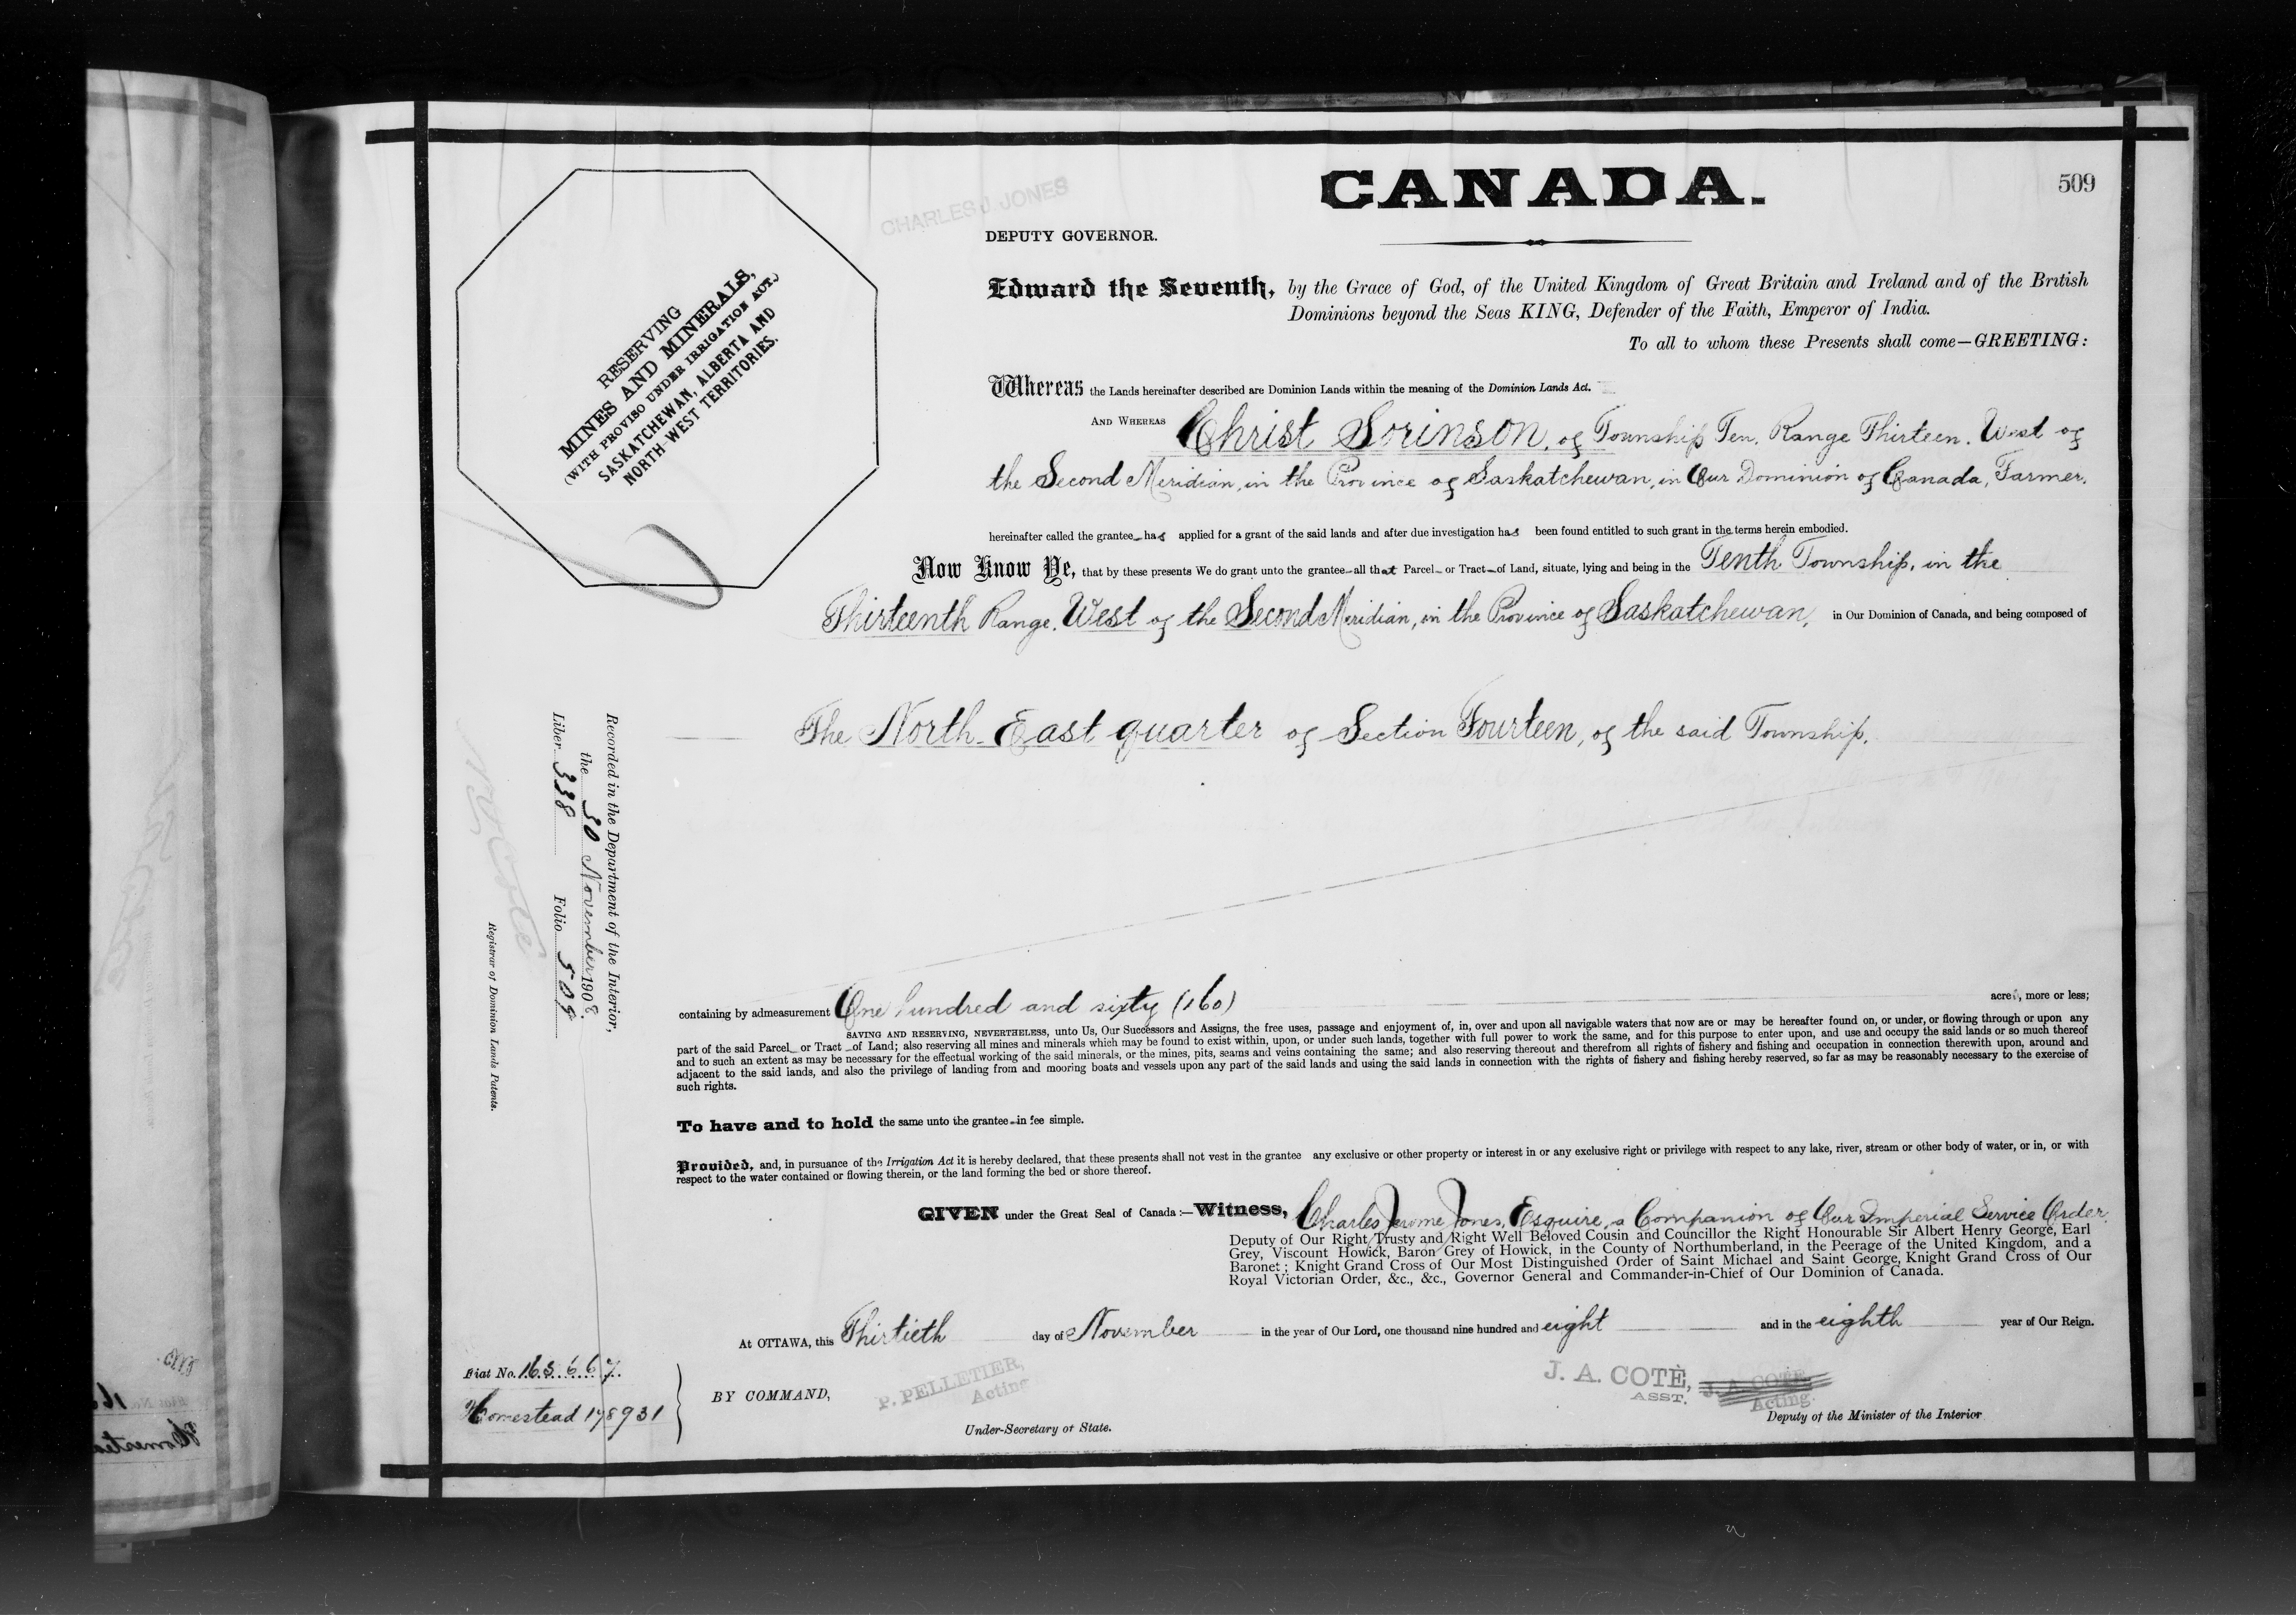 CANADA.
509
CHARLES J. JONES
DEPUTY GOVERNOR.
RESERVING
MINES AND MINERALS,
(WITH PROVISO UNDER IRRIGATION ACT.)
SASKATCHEWAN, ALBERTA AND
NORTH-WEST TERRITORIES.
Edward the Seventh, by the Grace of God, of the United Kingdom of Great Britain and Ireland and of the British
Dominions beyond the Seas KING, Defender of the Faith, Emperor of India.
To all to whom these Presents shall come—GREETING:
Whereas the Lands hereinafter described are Dominion Lands within the meaning of the Dominion Lands Act.
AND WHEREAS Christ Sorinson, of Township Ten, Range Thirteen, West of
the Second Meridian, in the Province of Saskatchewan, in Our Dominion of Canada, Farmer,
hereinafter called the grantee has applied for a grant of the said lands and after due investigation has been found entitled to such grant in the terms herein embodied.
Now Know Ye, that by these presents We do grant unto the grantee all that Parcel or Tract of Land, situate, lying and being in the Tenth Township, in the
Thirteenth Range, West of the Second Meridian, in the Province of Saskatchewan, in Our Dominion of Canada, and being composed of
The North East quarter of Section Fourteen, of the said Township.
containing by admeasurement One hundred and sixty (160) acres, more or less;
SAVING AND RESERVING, NEVERTHELESS, unto Us, Our Successors and Assigns, the free uses, passage and enjoyment of, in, over and upon all navigable waters that now are or may be hereafter found on, or under, or flowing through or upon any
part of the said Parcel or Tract of Land; also reserving all mines and minerals which may be found to exist within, upon, or under such lands, together with full power to work the same, and for this purpose to enter upon, and use and occupy the said lands or so much thereof
and to such an extent as may be necessary for the effectual working of the said minerals, or the mines, pits, seams and veins containing the same; and also reserving thereout and therefrom all rights of fishery and fishing and occupation in connection therewith upon, around and
adjacent to the said lands, and also the privilege of landing from and mooring boats and vessels upon any part of the said lands and using the said lands in connection with the rights of fishery and fishing hereby reserved, so far as may be reasonably necessary to the exercise of
such rights.
To have and to hold the same unto the grantee in fee simple.
Provided, and, in pursuance of the Irrigation Act it is hereby declared, that these presents shall not vest in the grantee any exclusive or other property or interest in or any exclusive right or privilege with respect to any lake, river, stream or other body of water, or in, or with
respect to the water contained or flowing therein, or the land forming the bed or shore thereof.
GIVEN under the Great Seal of Canada:—Witness, Charles Jerome Jones, Esquire, a Companion of Our Imperial Service Order
Deputy of Our Right Trusty and Right Well Beloved Cousin and Councillor the Right Honourable Sir Albert Henry George, Earl
Grey, Viscount Howick, Baron Grey of Howick, in the County of Northumberland, in the Peerage of the United Kingdom, and a
Baronet; Knight Grand Cross of Our Most Distinguished Order of Saint Michael and Saint George, Knight Grand Cross of Our
Royal Victorian Order, &c., &c., Governor General and Commander-in-Chief of Our Dominion of Canada.
At OTTAWA, this Thirtieth day of November in the year of Our Lord, one thousand nine hundred and eight and in the eighth year of Our Reign.
BY COMMAND,
P. PELLETIER,
Acting
Under-Secretary of State.
J. A. COTÈ,
ASST.
J. A. COTÈ
Acting.
Deputy of the Minister of the Interior
Fiat No. 163667.
Homestead 178931
Recorded in the Department of the Interior,
the 30 November 1908.
Liber 338 Folio 509
Registrar of Dominion Lands Patents.